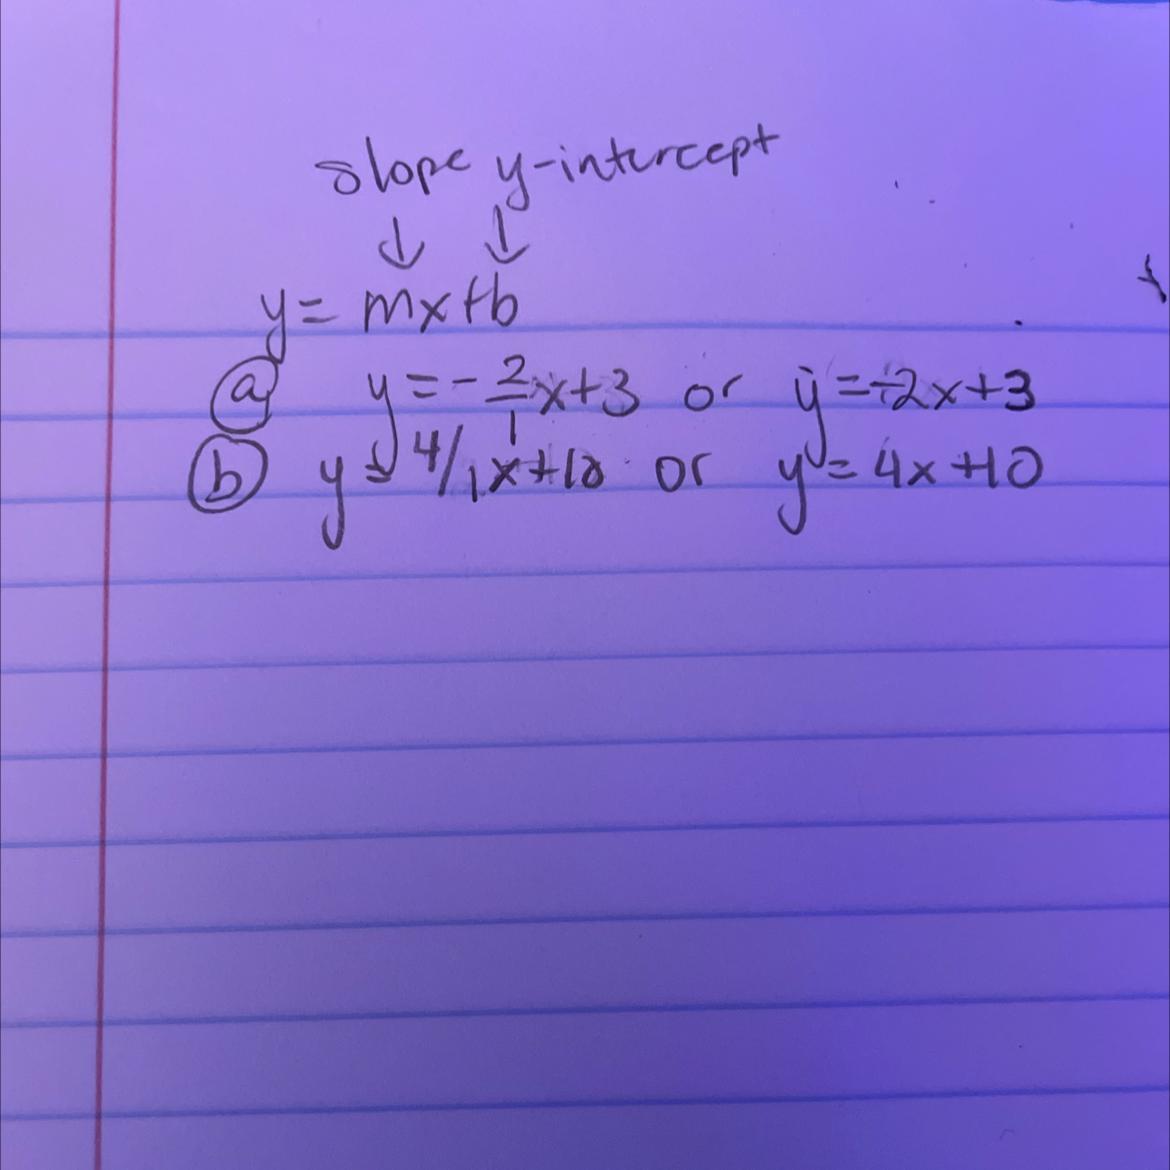 slope y-intercept
↓ ↓
y = mx+b
(a) y = -2/1x+3 or y = -2x+3
(b) y = 4/1x+10 or y = 4x+10